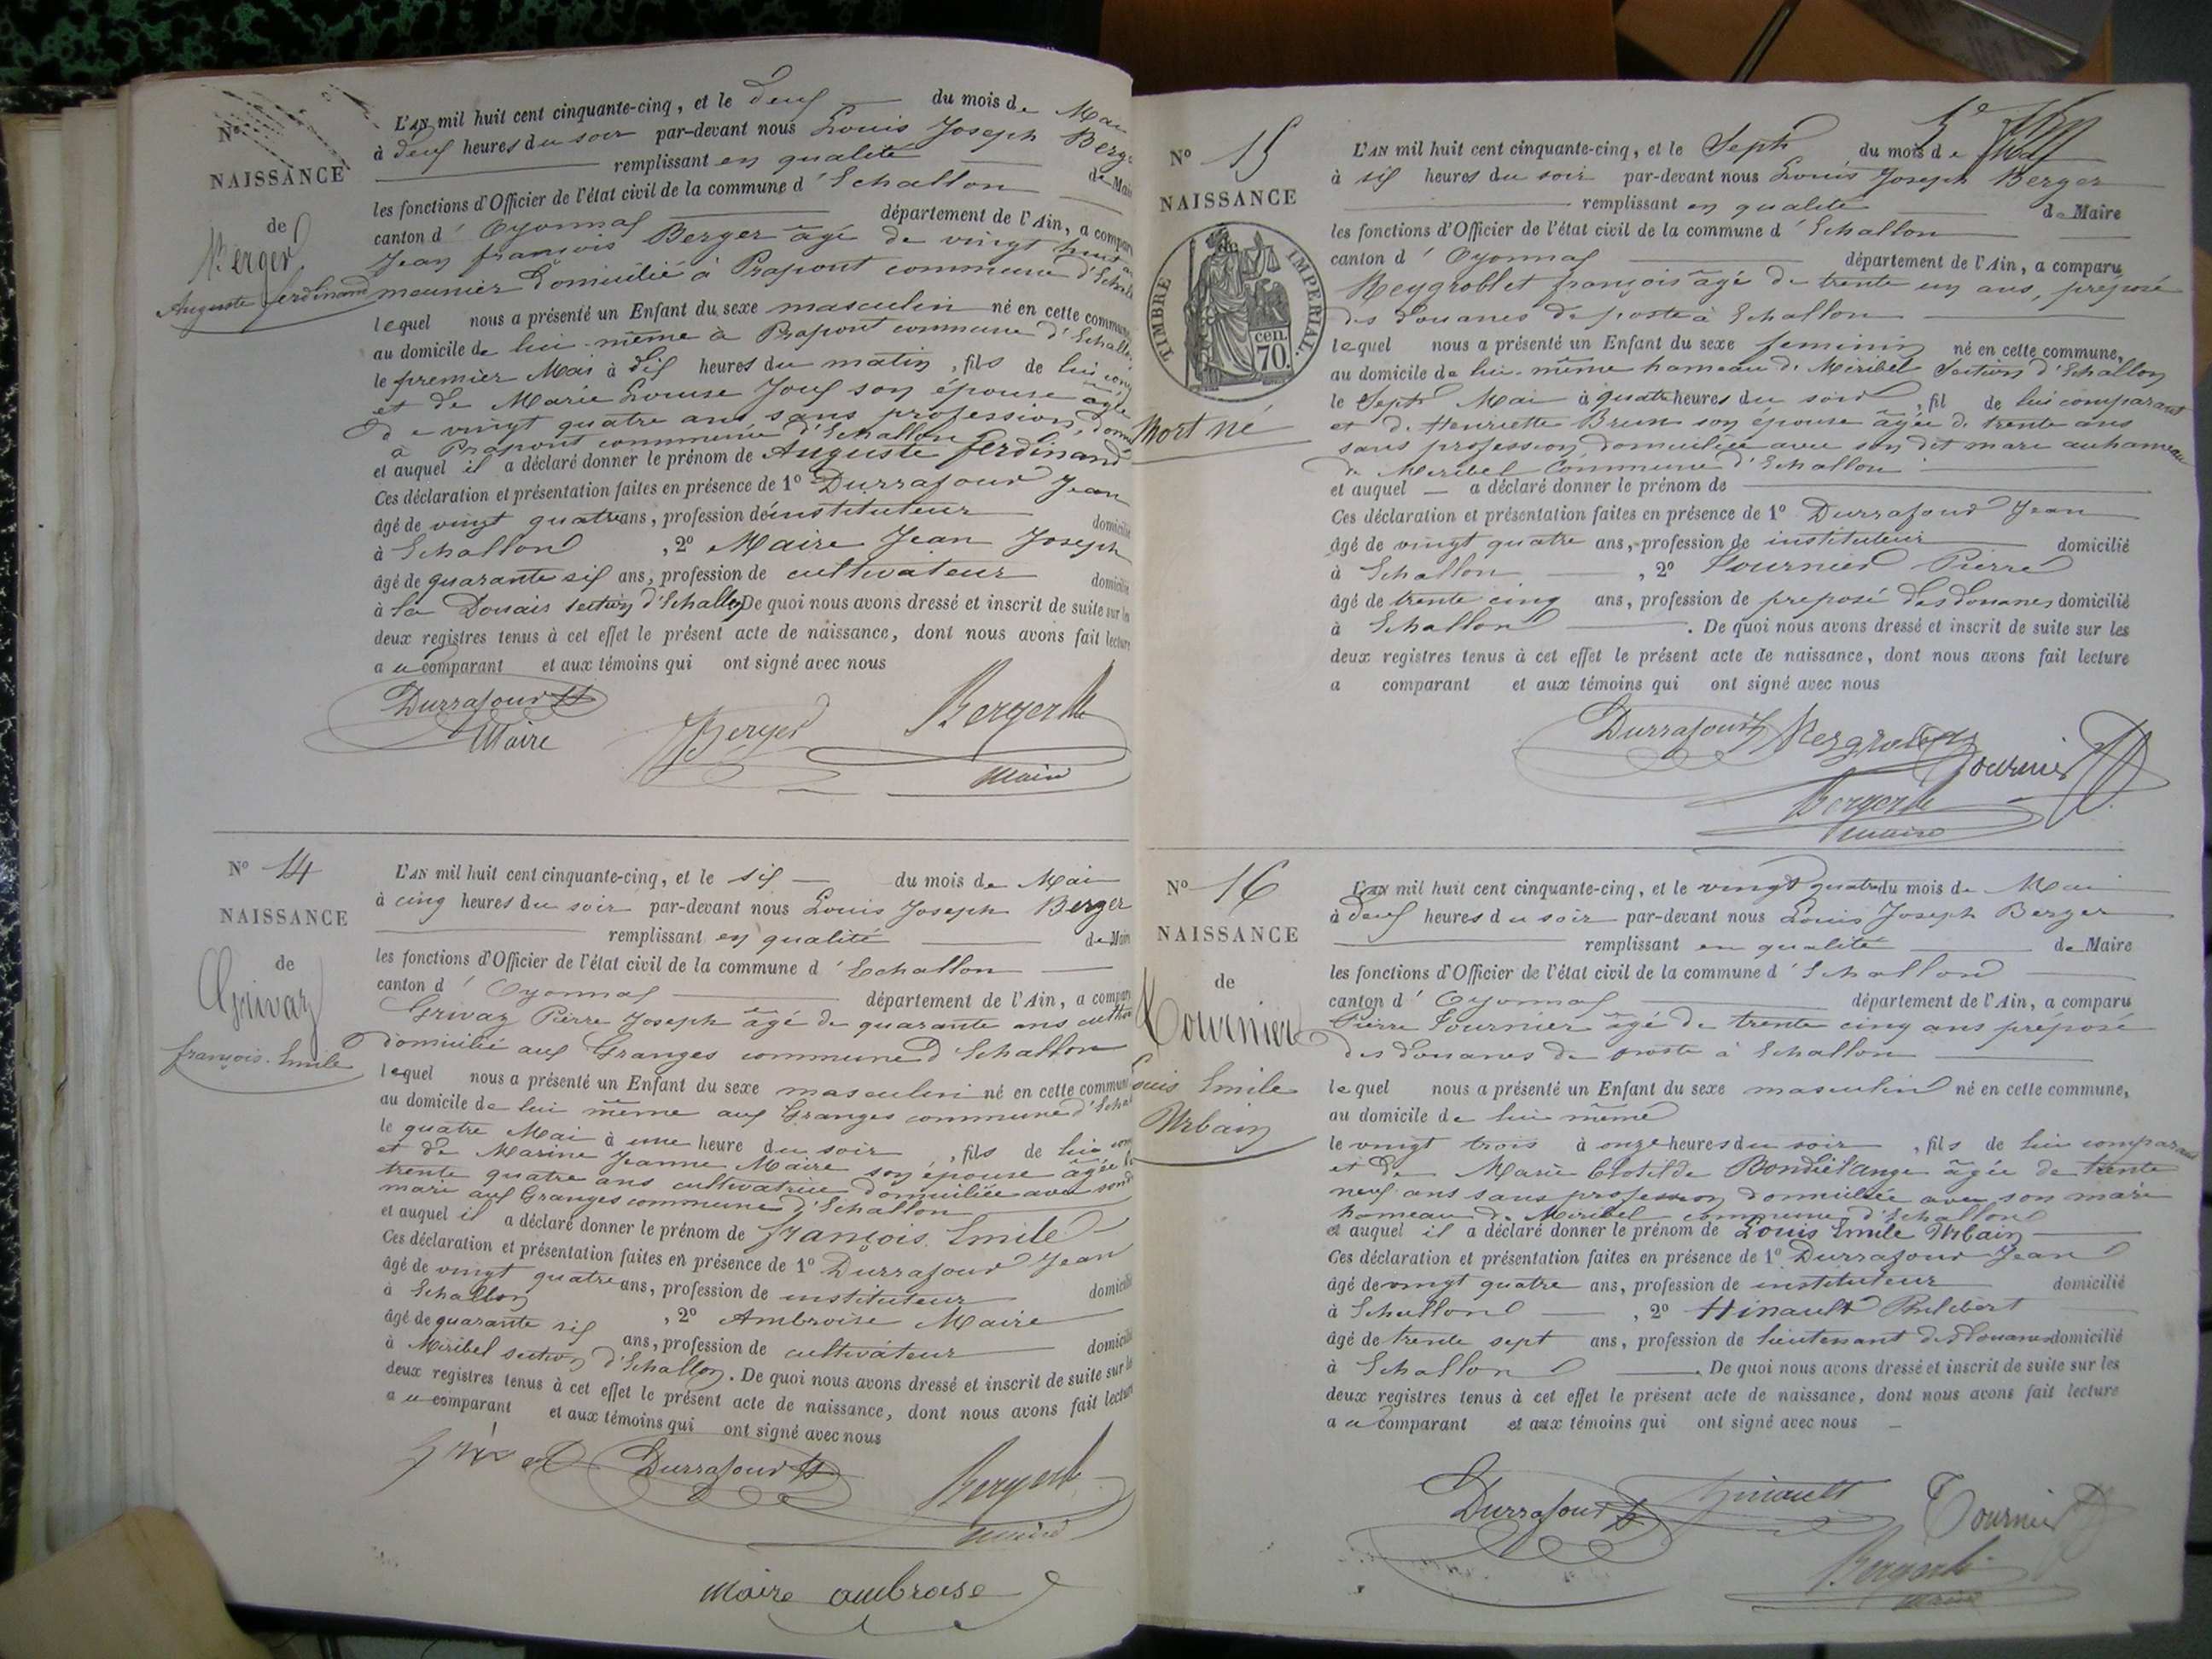 No
NAISSANCE
de
Berger
Auguste ferdinand
L'AN mil huit cent cinquante-cinq, et le deux du mois de Mai
à deux heures du soir par-devant nous Louis Joseph Berger
remplissant en qualité de Maire
les fonctions d'Officier de l'état civil de la commune d'Echallon
canton d'Oyonnax département de l'Ain, a comparu
Jean françois Berger âgé de vingt huit
meunier domicilié à Prapont commune d'Echallon
lequel nous a présenté un Enfant du sexe masculin né en cette commune
au domicile de lui-même à Prapont commune d'Echallon
le premier Mai à dix heures du matin, fils de lui
et de Marie Louise Joux son épouse âgée
de vingt quatre ans sans profession,
à Prapont commune d'Echallon
et auquel il a déclaré donner le prénom de Auguste ferdinand
Ces déclaration et présentation faites en présence de 1o Durrafour Jean
âgé de vingt quatre ans, profession d'instituteur domicilié
à Echallon, 2o Maire Jean Joseph
âgé de quarante six ans, profession de cultivateur domicilié
à la Douais section d'Echallon De quoi nous avons dressé et inscrit de suite sur les
deux registres tenus à cet effet le présent acte de naissance, dont nous avons fait lecture
au comparant et aux témoins qui ont signé avec nous
Durrafour
Maire
Berger
Berger
Maire
No 14
NAISSANCE
de
Grivaz
françois Emile
L'AN mil huit cent cinquante-cinq, et le six du mois de Mai
à cinq heures du soir par-devant nous Louis Joseph Berger
remplissant en qualité de Maire
les fonctions d'Officier de l'état civil de la commune d'Echallon
canton d'Oyonnax département de l'Ain, a comparu
Grivaz Pierre Joseph âgé de quarante ans
domicilié aux Granges commune d'Echallon
lequel nous a présenté un Enfant du sexe masculin né en cette commune
au domicile de lui même aux Granges commune d'Echallon
le quatre Mai à une heure du soir, fils de lui
et de Marine Jeanne Maire son épouse âgée de
trente quatre ans cultivatrice domiciliée avec son
mari aux Granges commune d'Echallon
et auquel il a déclaré donner le prénom de françois Emile
Ces déclaration et présentation faites en présence de 1o Durrafour Jean
âgé de vingt quatre ans, profession de instituteur domicilié
à Echallon, 2o Ambroise Maire
âgé de quarante six ans, profession de cultivateur domicilié
à Miribel section d'Echallon. De quoi nous avons dressé et inscrit de suite sur les
deux registres tenus à cet effet le présent acte de naissance, dont nous avons fait lecture
au comparant et aux témoins qui ont signé avec nous
Durrafour
Berger
maire
Maire ambroise
No 15
NAISSANCE
TIMBRE IMPERIAL.
cen. 70.
Mort né
L'AN mil huit cent cinquante-cinq, et le Sept du mois de
à six heures du soir par-devant nous Louis Joseph Berger
remplissant en qualité de Maire
les fonctions d'Officier de l'état civil de la commune d'Echallon
canton d'Oyonnax département de l'Ain, a comparu
Reygroblet françois âgé de trente un ans, préposé
des douanes de poste à Echallon
lequel nous a présenté un Enfant du sexe feminin né en cette commune,
au domicile de lui-même hameau de Miribel Section d'Echallon
le Sept Mai à quatre heures du soir, fil de lui comparant
et de Henriette Brun son épouse âgée de trente ans
sans profession domiciliée avec son dit mari au hameau
de Miribel Commune d'Echallon
et auquel a déclaré donner le prénom de
Ces déclaration et présentation faites en présence de 1o Durrafour Jean
âgé de vingt quatre ans, profession de instituteur domicilié
à Echallon, 2o Tournier Pierre
âgé de trente cinq ans, profession de préposé des douanes domicilié
à Echallon. De quoi nous avons dressé et inscrit de suite sur les
deux registres tenus à cet effet le présent acte de naissance, dont nous avons fait lecture
a comparant et aux témoins qui ont signé avec nous
Durrafour
Tournier
Berger
maire
No 16
NAISSANCE
de
Tournier
Louis Emile
Urbain
L'AN mil huit cent cinquante-cinq, et le vingt quatre du mois de Mai
à deux heures du soir par-devant nous Louis Joseph Berger
remplissant en qualité de Maire
les fonctions d'Officier de l'état civil de la commune d'Echallon
canton d'Oyonnax département de l'Ain, a comparu
Pierre Tournier âgé de trente cinq ans préposé
des douanes de poste à Echallon
lequel nous a présenté un Enfant du sexe masculin né en cette commune,
au domicile de lui même
le vingt trois à onze heures du soir, fils de lui comparant
et de Marie Clotilde Rondielange âgée de trente
neuf ans sans profession domiciliée avec son mari
hameau de Miribel commune d'Echallon
et auquel il a déclaré donner le prénom de Louis Emile Urbain
Ces déclaration et présentation faites en présence de 1o Durrafour Jean
âgé de vingt quatre ans, profession de instituteur domicilié
à Echallon, 2o Hinault Philibert
âgé de trente sept ans, profession de lieutenant des douanes domicilié
à Echallon. De quoi nous avons dressé et inscrit de suite sur les
deux registres tenus à cet effet le présent acte de naissance, dont nous avons fait lecture
au comparant et aux témoins qui ont signé avec nous
Durrafour
hinault
Tournier
Berger
maire